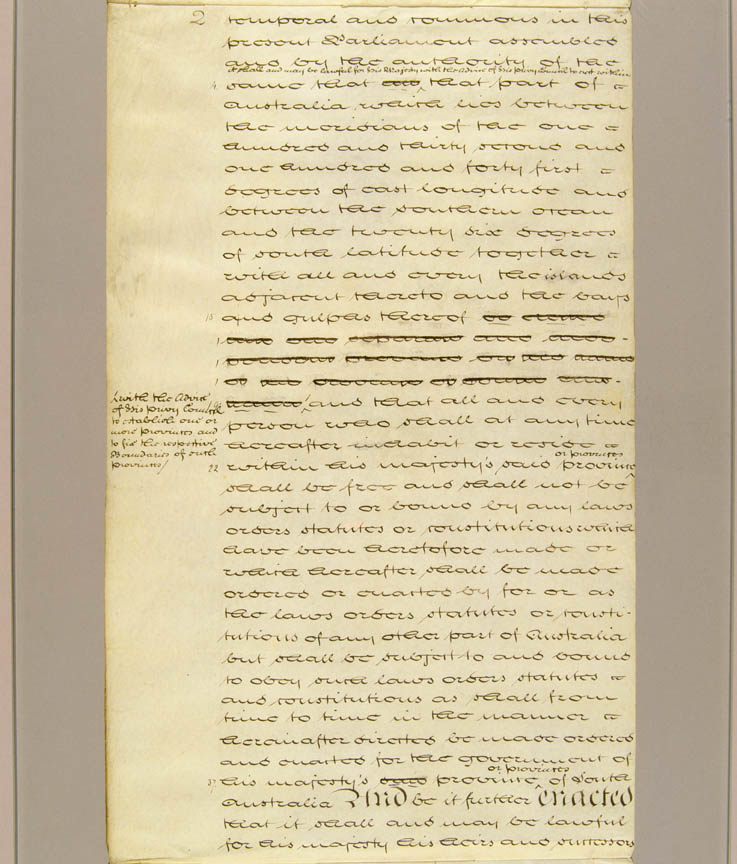 2 temporal and commons in this
present Parliament assembled
and by the authority of the
it shall and may be lawful for His Majesty with the Advice of His Privy Council to
same that all that part of
Australia which lies between
the meridians of the one
hundred and thirty second and
one hundred and forty first
degrees of east longitude and
between the southern ocean
and the twenty six degrees
of south latitude together
with all and every the islands
adjacent thereto and the bays
and gulphs thereof be erected
into one separate and inde-
pendent province by the name
of the province of South Aus-
tralia and that all and every
with the Advice
of His Privy Council
to establish one or
more Provinces and
to fix the respective
Boundaries of such
Provinces
person who shall at any time
hereafter inhabit or reside
or provinces
within his majesty's said province
shall be free and shall not be
subject to or bound by any laws
orders statutes or constitutions which
have been heretofore made or
which hereafter shall be made
ordered or enacted by for or as
the laws orders statutes or consti-
tutions of any other part of Australia
but shall be subject to and bound
to obey such laws orders statutes
and constitutions as shall from
time to time in the manner
hereinafter directed be made ordered
and enacted for the government of
or provinces
his majesty's said province of South
Australia And be it further enacted
that it shall and may be lawful
for his majesty his heirs and successors